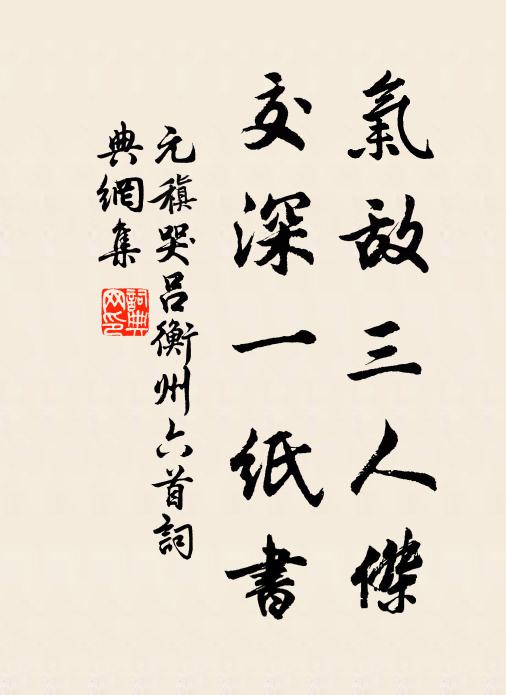 氣敌三人傑
交深一纸書
元稹哭吕衡州六首詞
典網集
詞典
网印